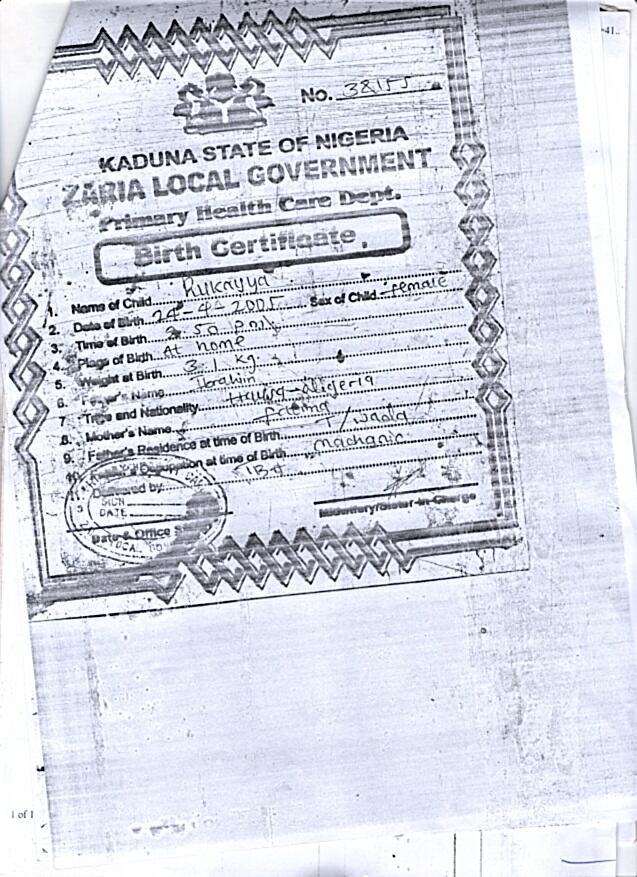 No. 38155
KADUNA STATE OF NIGERIA
ZARIA LOCAL GOVERNMENT
Primary Health Care Dept.
Birth Certificate
1. Name of Child Rukayya
2. Date of Birth 24-4-2005 Sex of Child female
3. Time of Birth 50 p.m
4. Place of Birth At home
5. Weight at Birth 3.1 kg.
6. Father's Name Ibrahim
7. Tribe and Nationality Hausa-Nigeria
8. Mother's Name fatima
9. Father's Residence at time of Birth T/wada
10. Occupation at time of Birth machanic
Delivered by TBA
SIGN
DATE
Date & Office
LOCAL
Midwifery/Sister-in-Charge
1 of 1